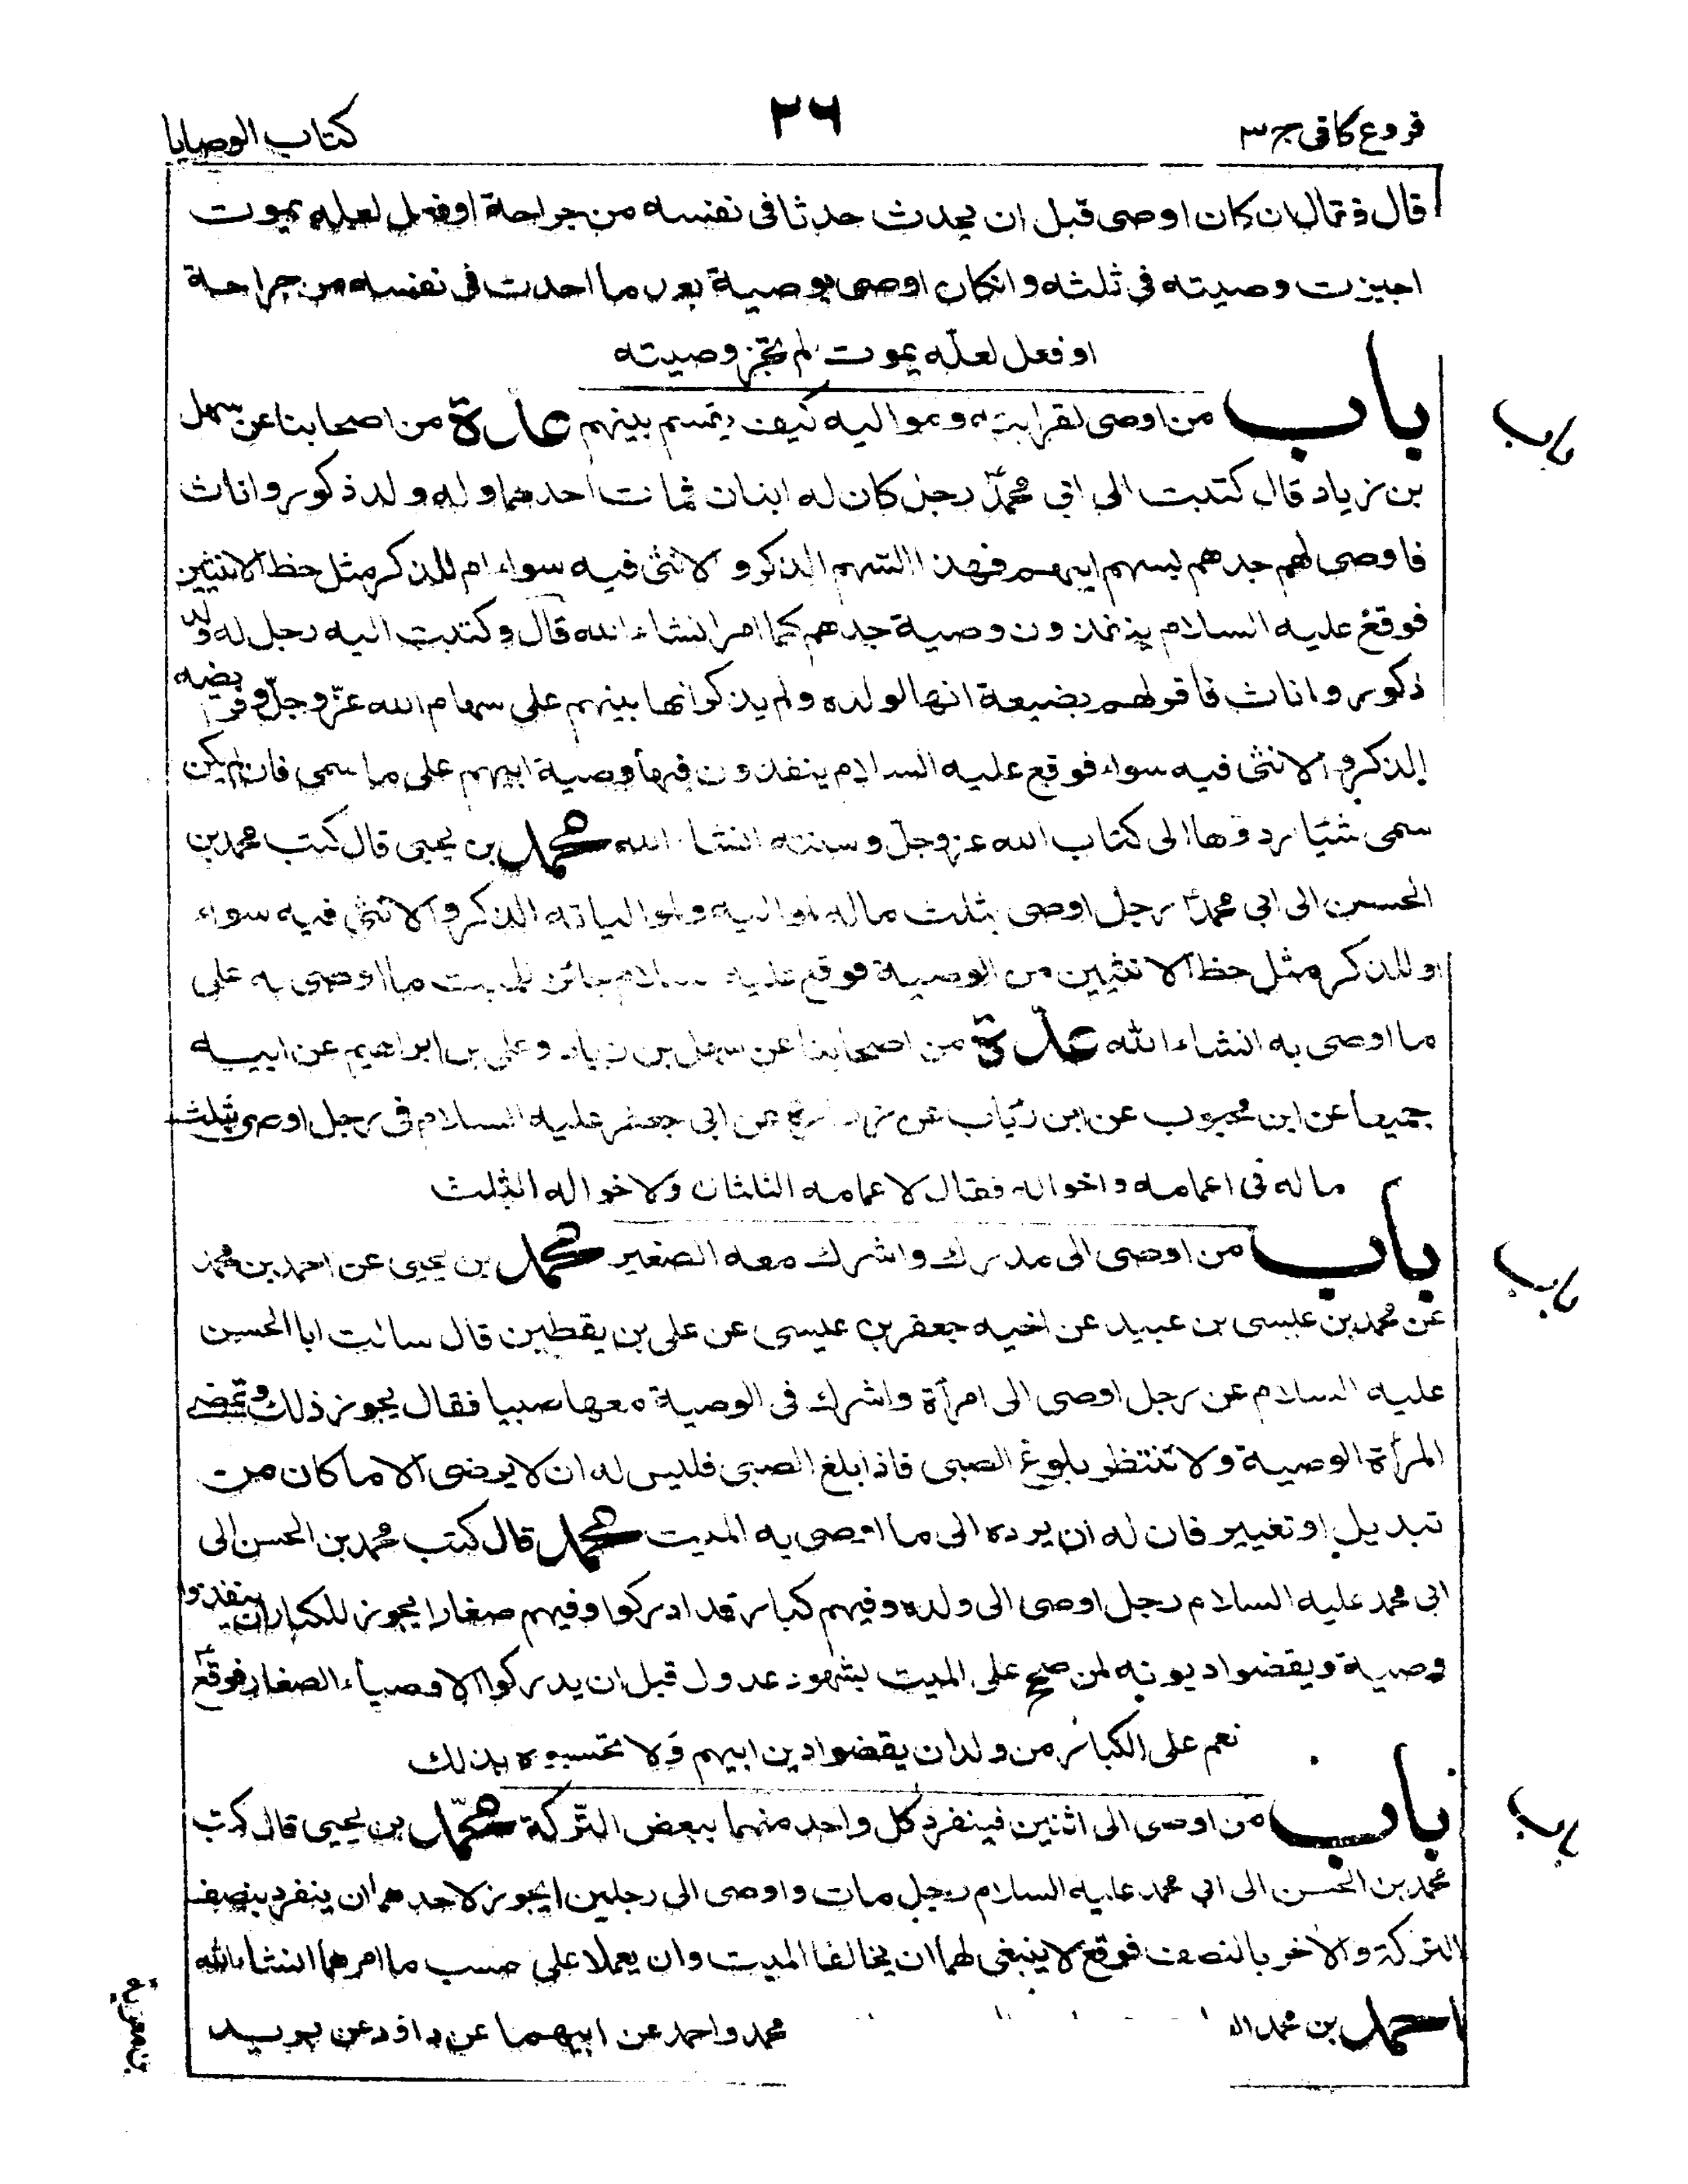 فروع كافى ج ٣
٢٦
كتاب الوصايا
قال فقال ان كان اوصى قبل ان يحدث حدثا فى نفسه من جراحة او فعل لعله يموت
اجيزت وصيته فى ثلثه وانكان اوصى بوصية بعد ما احدث فى نفسه من جراحة
او فعل لعلّه يموت لم تجز وصيته
باب من اوصى لقرابته ومواليه كيف يقسم بينهم عدة من اصحابنا عن سهل
باب
بن زياد قال كتبت الى ابى محمدؑ رجل كان له ابنان فمات احدهما وله ولد ذكور واناث
فاوصى لهم جدهم بسهم ابيهم فهذا السّهم الذكر والانثى فيه سواء ام للذكر مثل حظ الانثيين
فوقع عليه السلام ينفذون وصية جدهم كما امر انشاء الله قال وكتبت اليه رجل له ولد
ذكور واناث فاقر لهم بضيعة انها لولده ولم يذكر انها بينهم على سهام الله عزّ وجلّ وفرايضه
الذكر والانثى فيه سواء فوقع عليه السلام ينفذون فيها وصية ابيهم على ما سمى فان لم يكن
سمى شيئا ردوها الى كتاب الله عز وجلّ وسنته انشاء الله محمد بن يحيى قال كتب محمد بن
الحسن الى ابى محمدؑ رجل اوصى بثلث ماله لمواليه ولمولياته الذكر والانثى فيه سواء
او للذكر مثل حظ الانثيين من الوصية فوقع عليه السلام جائز للميت ما اوصى به على
ما اوصى به انشاء الله عدّة من اصحابنا عن سهل بن زياد وعلى بن ابراهيم عن ابيه
جميعا عن ابن محبوب عن ابن رئاب عن زرارة عن ابى جعفر عليه السلام فى رجل اوصى بثلث
ماله فى اعمامه واخواله فقال لاعمامه الثلثان ولاخواله الثلث
باب من اوصى الى مدرك واشرك معه الصغير محمد بن يحيى عن احمد بن محمد
باب
عن محمد بن عيسى بن عبيد عن اخيه جعفر بن عيسى عن على بن يقطين قال سالت ابا الحسن
عليه السلام عن رجل اوصى الى امرأة واشرك فى الوصية معها صبيا فقال يجوز ذلك وتمضى
المرأة الوصية ولا تنتظر بلوغ الصبى فاذا بلغ الصبى فليس له ان لا يرضى الا ما كان من
تبديل او تغيير فان له ان يرده الى ما اوصى به الميت محمد قال كتب محمد بن الحسن الى
ابى محمد عليه السلام رجل اوصى الى ولده وفيهم كبار قد ادركوا وفيهم صغار ايجوز للكبار ان ينفذوا
وصية ويقضوا ديونه لمن صح على الميت بشهود عدول قبل ان يدركوا الاوصياء الصغار فوقعؑ
نعم على الكبار من ولد ان يقضوا دين ابيهم ولا يحتسبوه بذلك
باب من اوصى الى اثنين فينفرد كل واحد منهما ببعض التّركة محمّد بن يحيى قال كتب
باب
محمد بن الحسن الى ابى محمد عليه السلام رجل مات واوصى الى رجلين ايجوز لاحدهما ان ينفرد بنصف
التركة والاخر بالنصف فوقعؑ لا ينبغى لهما ان يخالفا الميت وان يعملا على حسب ما امرهما انشاء الله
احمد بن محمد محمد واحمد عن ابيهما عن داود عن بريد